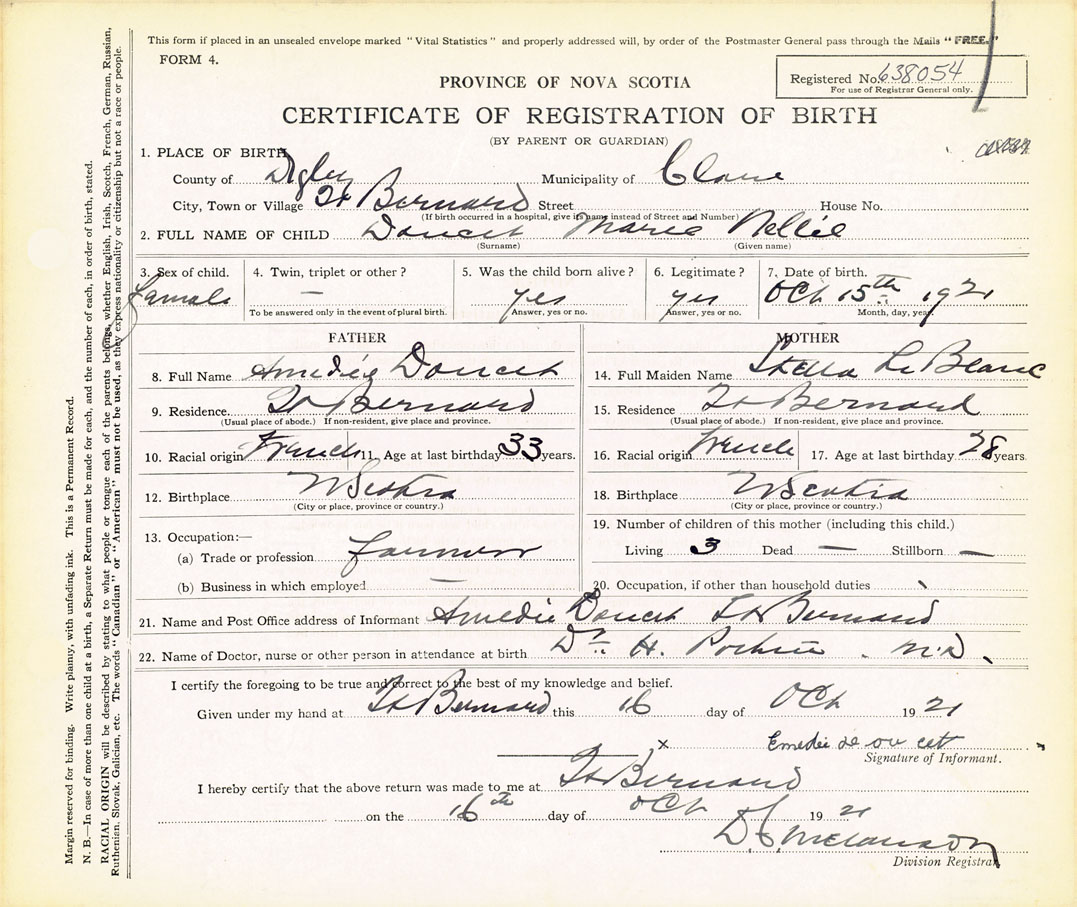 This form if placed in an unsealed envelope marked "Vital Statistics" and properly addressed will, by order of the Postmaster General pass through the Mails "FREE."
FORM 4.
PROVINCE OF NOVA SCOTIA
Registered No. 638054
For use of Registrar General only.
CERTIFICATE OF REGISTRATION OF BIRTH
(BY PARENT OR GUARDIAN)
1. PLACE OF BIRTH
County of Digby Municipality of Clare
City, Town or Village St Bernard Street House No.
(If birth occurred in a hospital, give its name instead of Street and Number)
2. FULL NAME OF CHILD Doucet Marie Nellie
(Surname) (Given name)
3. Sex of child. 4. Twin, triplet or other? 5. Was the child born alive? 6. Legitimate? 7. Date of birth.
female — yes yes Oct 15th 1921
To be answered only in the event of plural birth. Answer, yes or no. Answer, yes or no. Month, day, year.
FATHER
8. Full Name Amedée Doucet
9. Residence. St Bernard
(Usual place of abode.) If non-resident, give place and province.
10. Racial origin French 11. Age at last birthday 33 years.
12. Birthplace N Scotia
(City or place, province or country.)
13. Occupation:—
(a) Trade or profession farmer
(b) Business in which employed —
MOTHER
14. Full Maiden Name Stella Le Blanc
15. Residence St Bernard
(Usual place of abode.) If non-resident, give place and province.
16. Racial origin French 17. Age at last birthday 28 years.
18. Birthplace N Scotia
(City or place, province or country.)
19. Number of children of this mother (including this child.)
Living 3 Dead — Stillborn —
20. Occupation, if other than household duties
21. Name and Post Office address of Informant Amedie Doucet St Bernard
22. Name of Doctor, nurse or other person in attendance at birth Dr. H. M.D.
I certify the foregoing to be true and correct to the best of my knowledge and belief.
Given under my hand at St Bernard this 16 day of Oct 19 21
x Emedie de ou cet
Signature of Informant.
I hereby certify that the above return was made to me at St Bernard
on the 16th day of Oct 19 21
Melanson
Division Registrar
Margin reserved for binding. Write plainly, with unfading ink. This is a Permanent Record.
N. B.—In case of more than one child at a birth, a Separate Return must be made for each, and the number of each, in order of birth, stated.
RACIAL ORIGIN will be described by stating to what people or tongue each of the parents belongs, whether English, Irish, Scotch, French, German, Russian,
Ruthenian, Slovak, Galician, etc. The words "Canadian" or "American" must not be used, as they express nationality or citizenship but not a race or people.